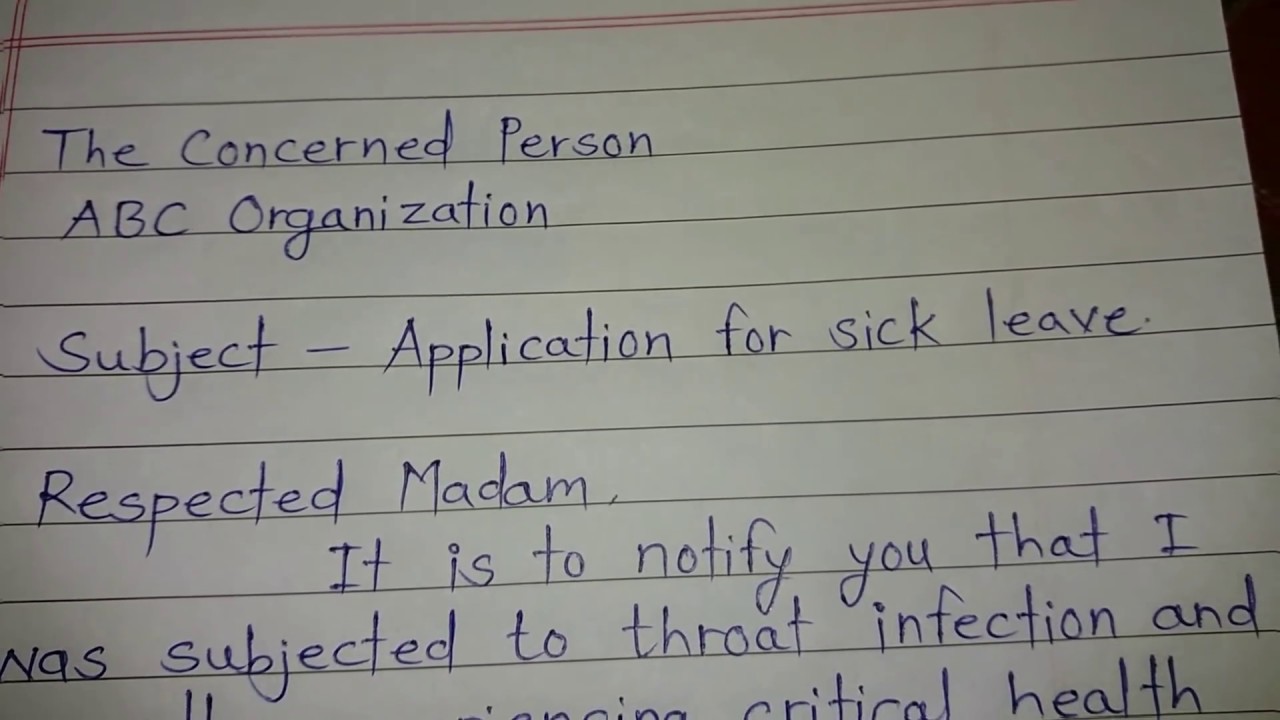 The Concerned Person
ABC Organization
Subject - Application for sick leave.
Respected Madam,
It is to notify you that I
was subjected to throat infection and
critical health